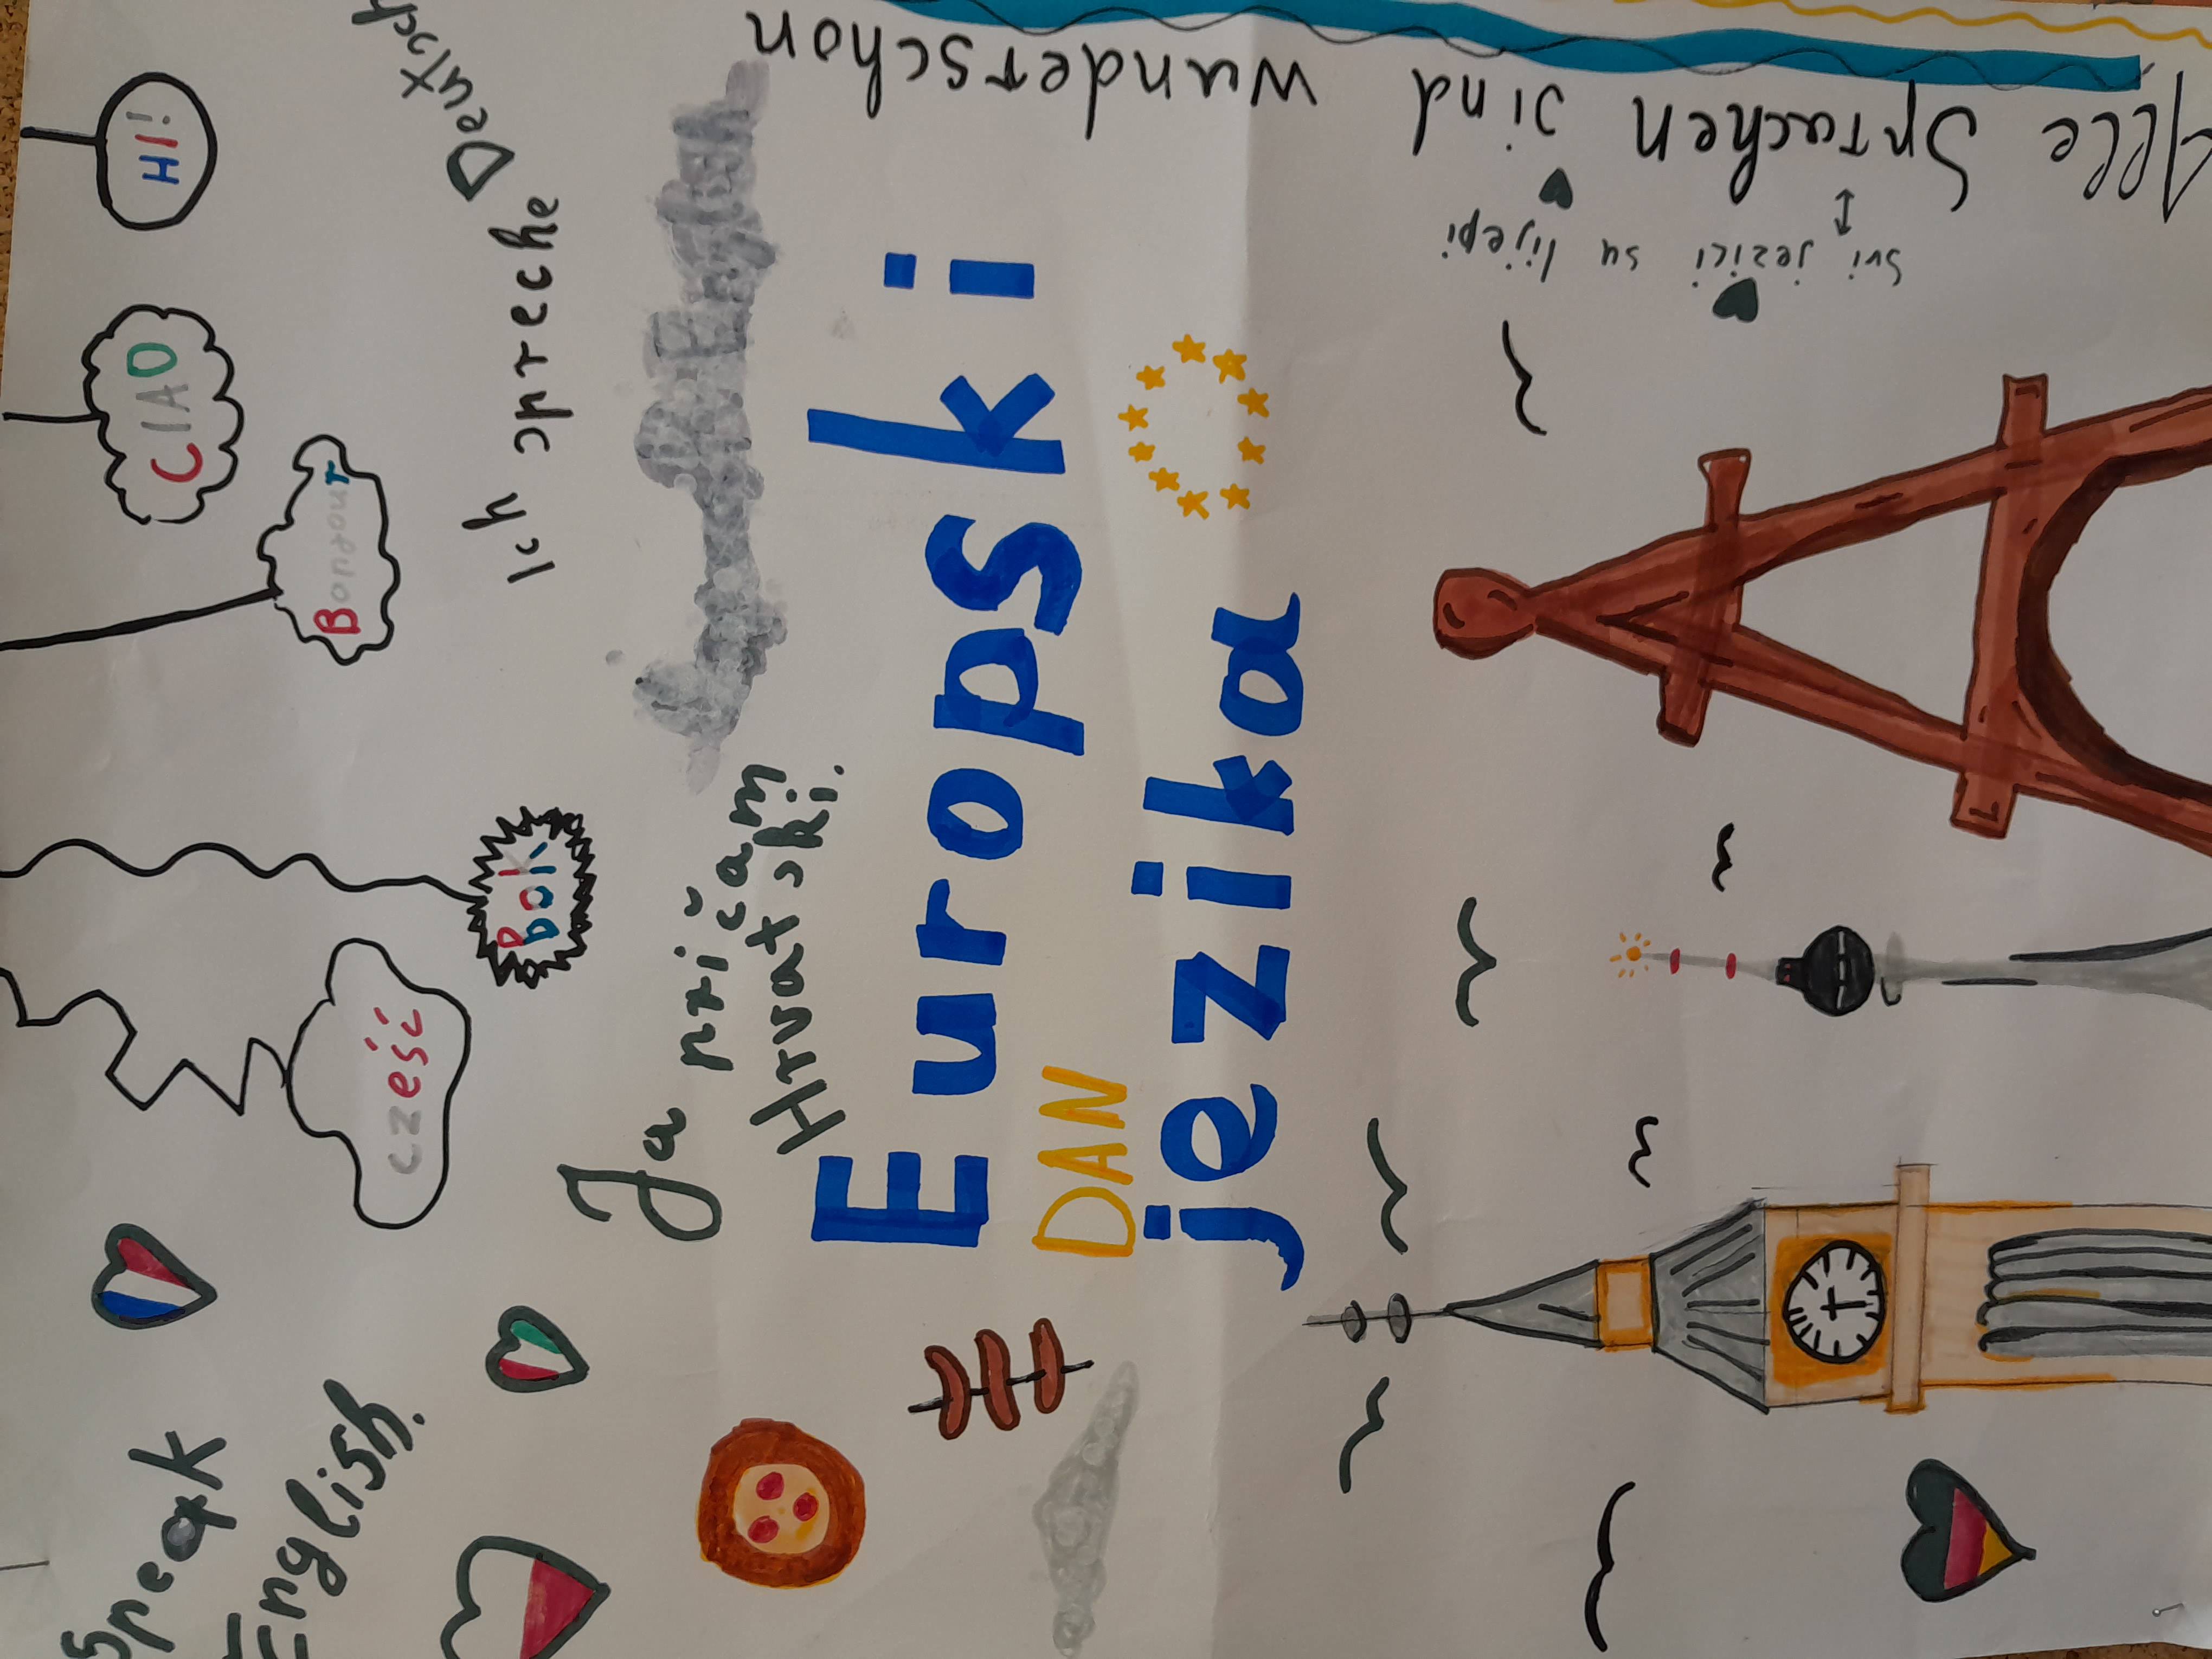 Speak
English.
HI!
CIAO
Bonjour
cześć
Bok
Ich spreche Deutsch
Ja pričam
Hrvatski.
Europski
DAN
jezika
Alle Sprachen sind wunderschon
Svi jezici su lijepi